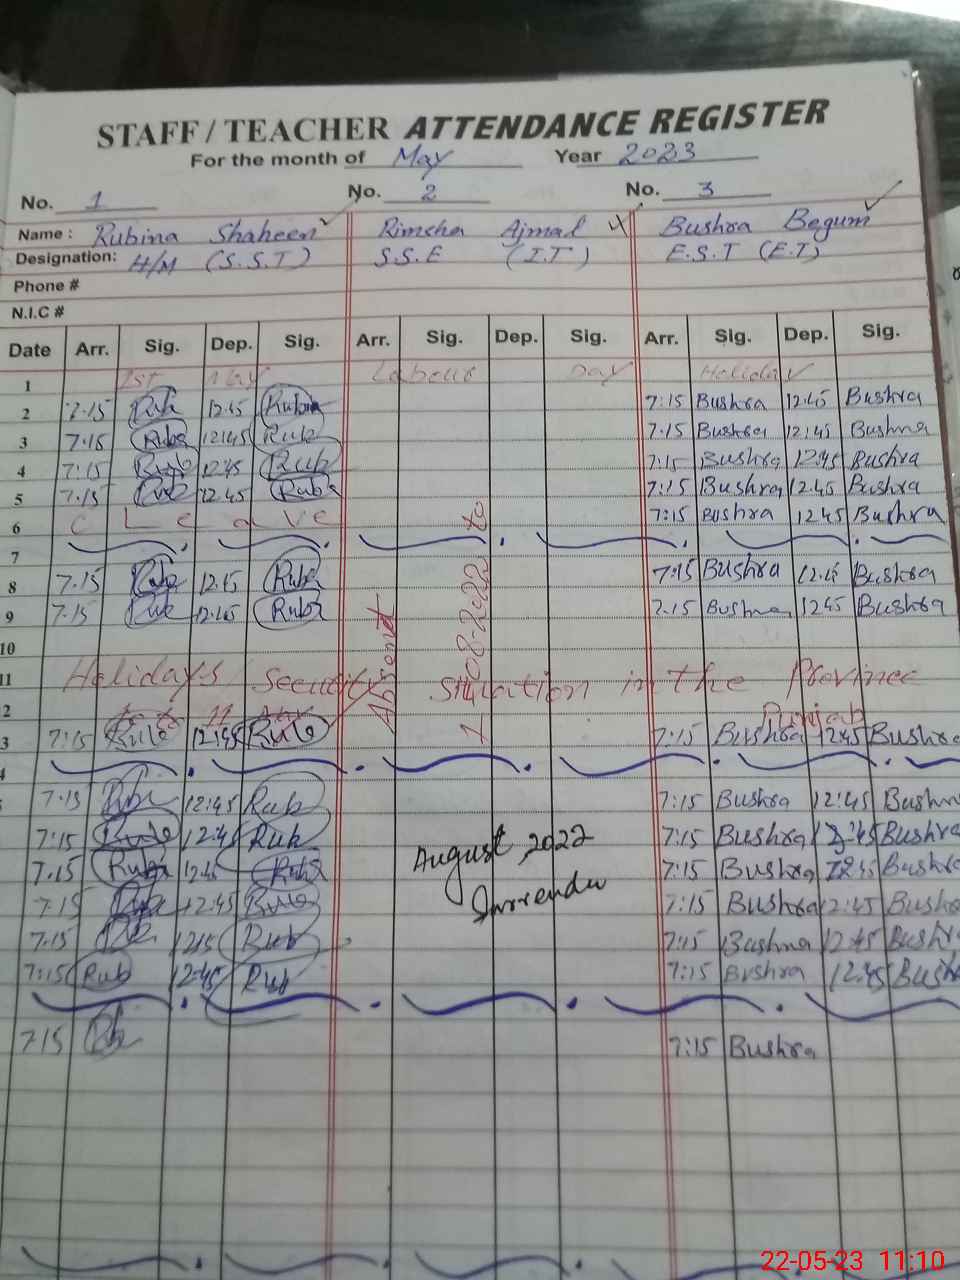 STAFF / TEACHER ATTENDANCE REGISTER
For the month of May Year 2023
No. 1 No. 2 No. 3
Name : Rubina Shaheen Rimsha Ajmal Bushra Begum
Designation: H/M (S.S.T) S.S.E (I.T) E.S.T (E.I)
Phone #
N.I.C #
Date Arr. Sig. Dep. Sig. Arr. Sig. Dep. Sig. Arr. Sig. Dep. Sig.
1 1st May Labour Day Holiday
2 7.15 Rub 12.45 Rubina 7:15 Bushra 12.45 Bushra
3 7.15 Rub 12:45 Rub 7.15 Bushra 12:45 Bushra
4 7:15 Rub 12.45 Rub 7:15 Bushra 12.45 Bushra
5 7.15 Rub 12.45 Rub 7:15 Bushra 12.45 Bushra
6 C Leave 7:15 Bushra 12.45 Bushra
7
8 7.15 Rub 12.45 Rub 7:15 Bushra 12.45 Bushra
9 7.15 Rub 12.45 Rub 7.15 Bushra 12.45 Bushra
10
11 Holidays Security Situation in the Province
2 Punjab
3 7:15 Rub 12:45 Rub 7:15 Bushra 12.45 Bushra
Absent
1-08-2022 to
4
7.15 Rub 12:45 Rub 7:15 Bushra 12:45 Bushra
7:15 Rub 12:45 Rub 7:15 Bushra 12:45 Bushra
7.15 Rub 12.45 Rub 7:15 Bushra 12.45 Bushra
7:15 Rub 12:45 Rub 7:15 Bushra 12:45 Bushra
7.15 Rub Rub 7:15 Bushra 12:45 Bushra
7:15 Rub 12:45 Rub 7:15 Bushra 12.45 Bush
August, 2022
Surrender
7:15 7:15 Bushra
22-05-23 11:10